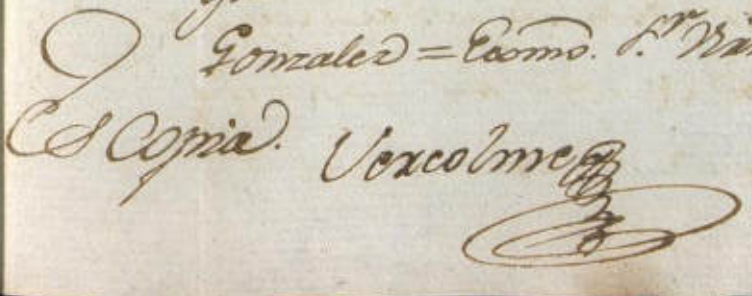 Gonzalez = Exmo. S.r
Es Copia. Vercolme